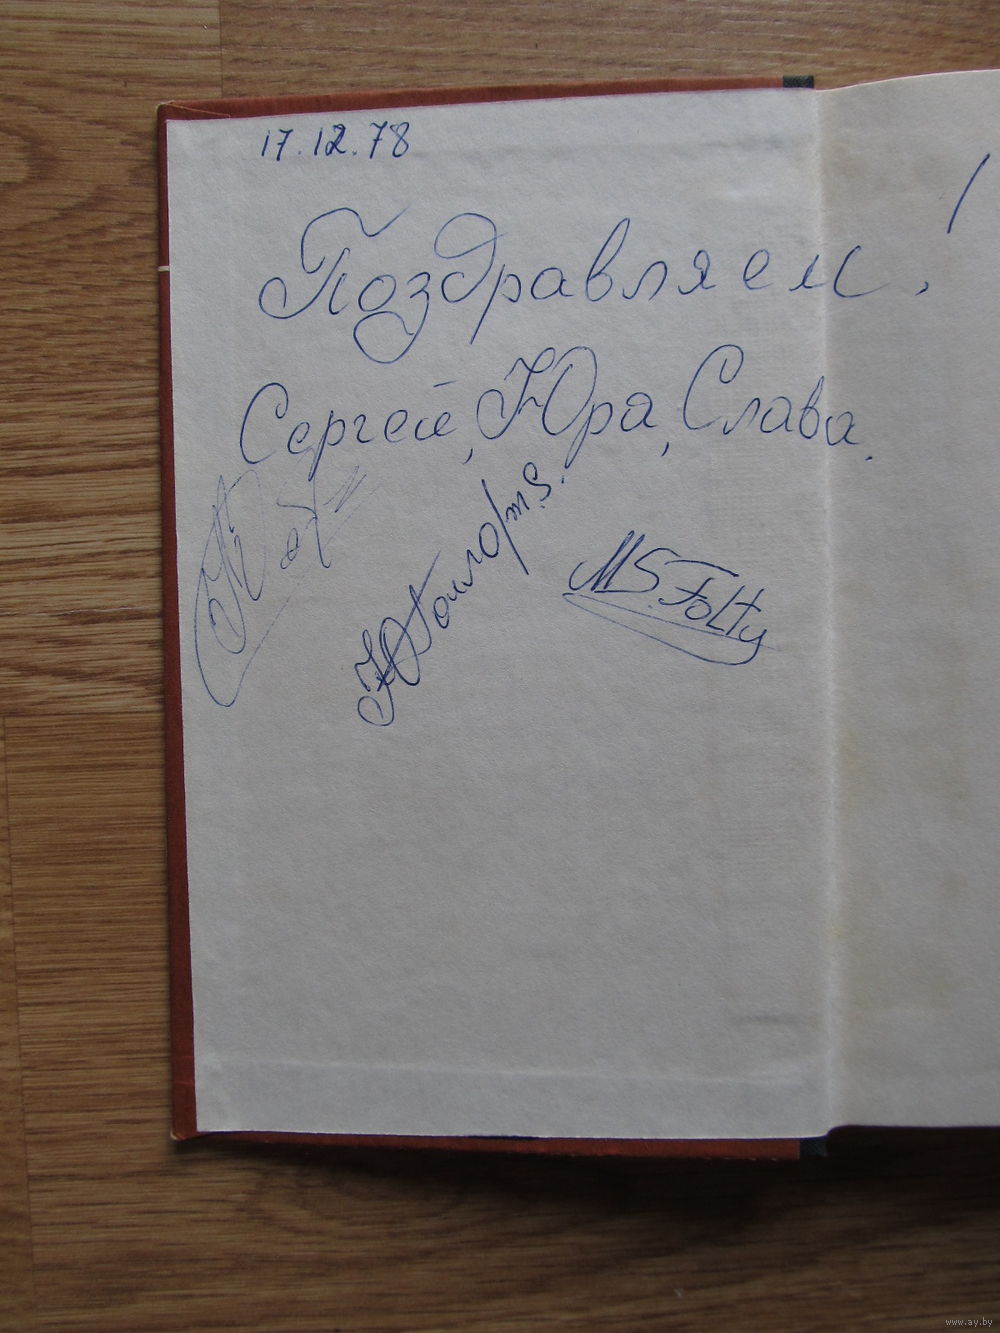 17.12.78
Поздравляем!
Сергей, Юра, Слава.
MS.Folty
www.ay.by